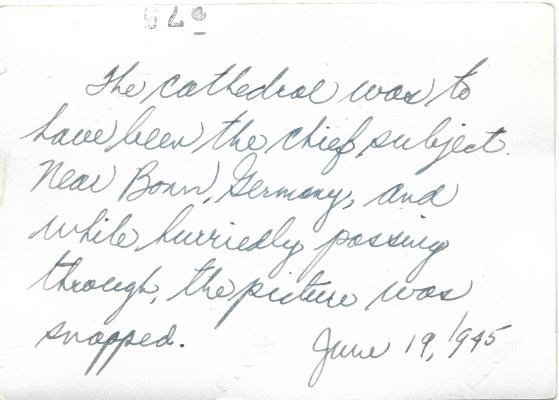 The cathedral was to
have been the chief subject.
Near Bonn, Germany, and
while hurriedly passing
through, the picture was
snapped.
June 19, 1945